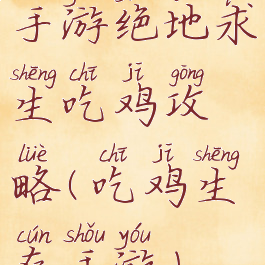 手游绝地求
shēng chī jī gōng
生吃鸡攻
lüè chī jī shēng
略(吃鸡生
cún shǒu yóu
存手游)